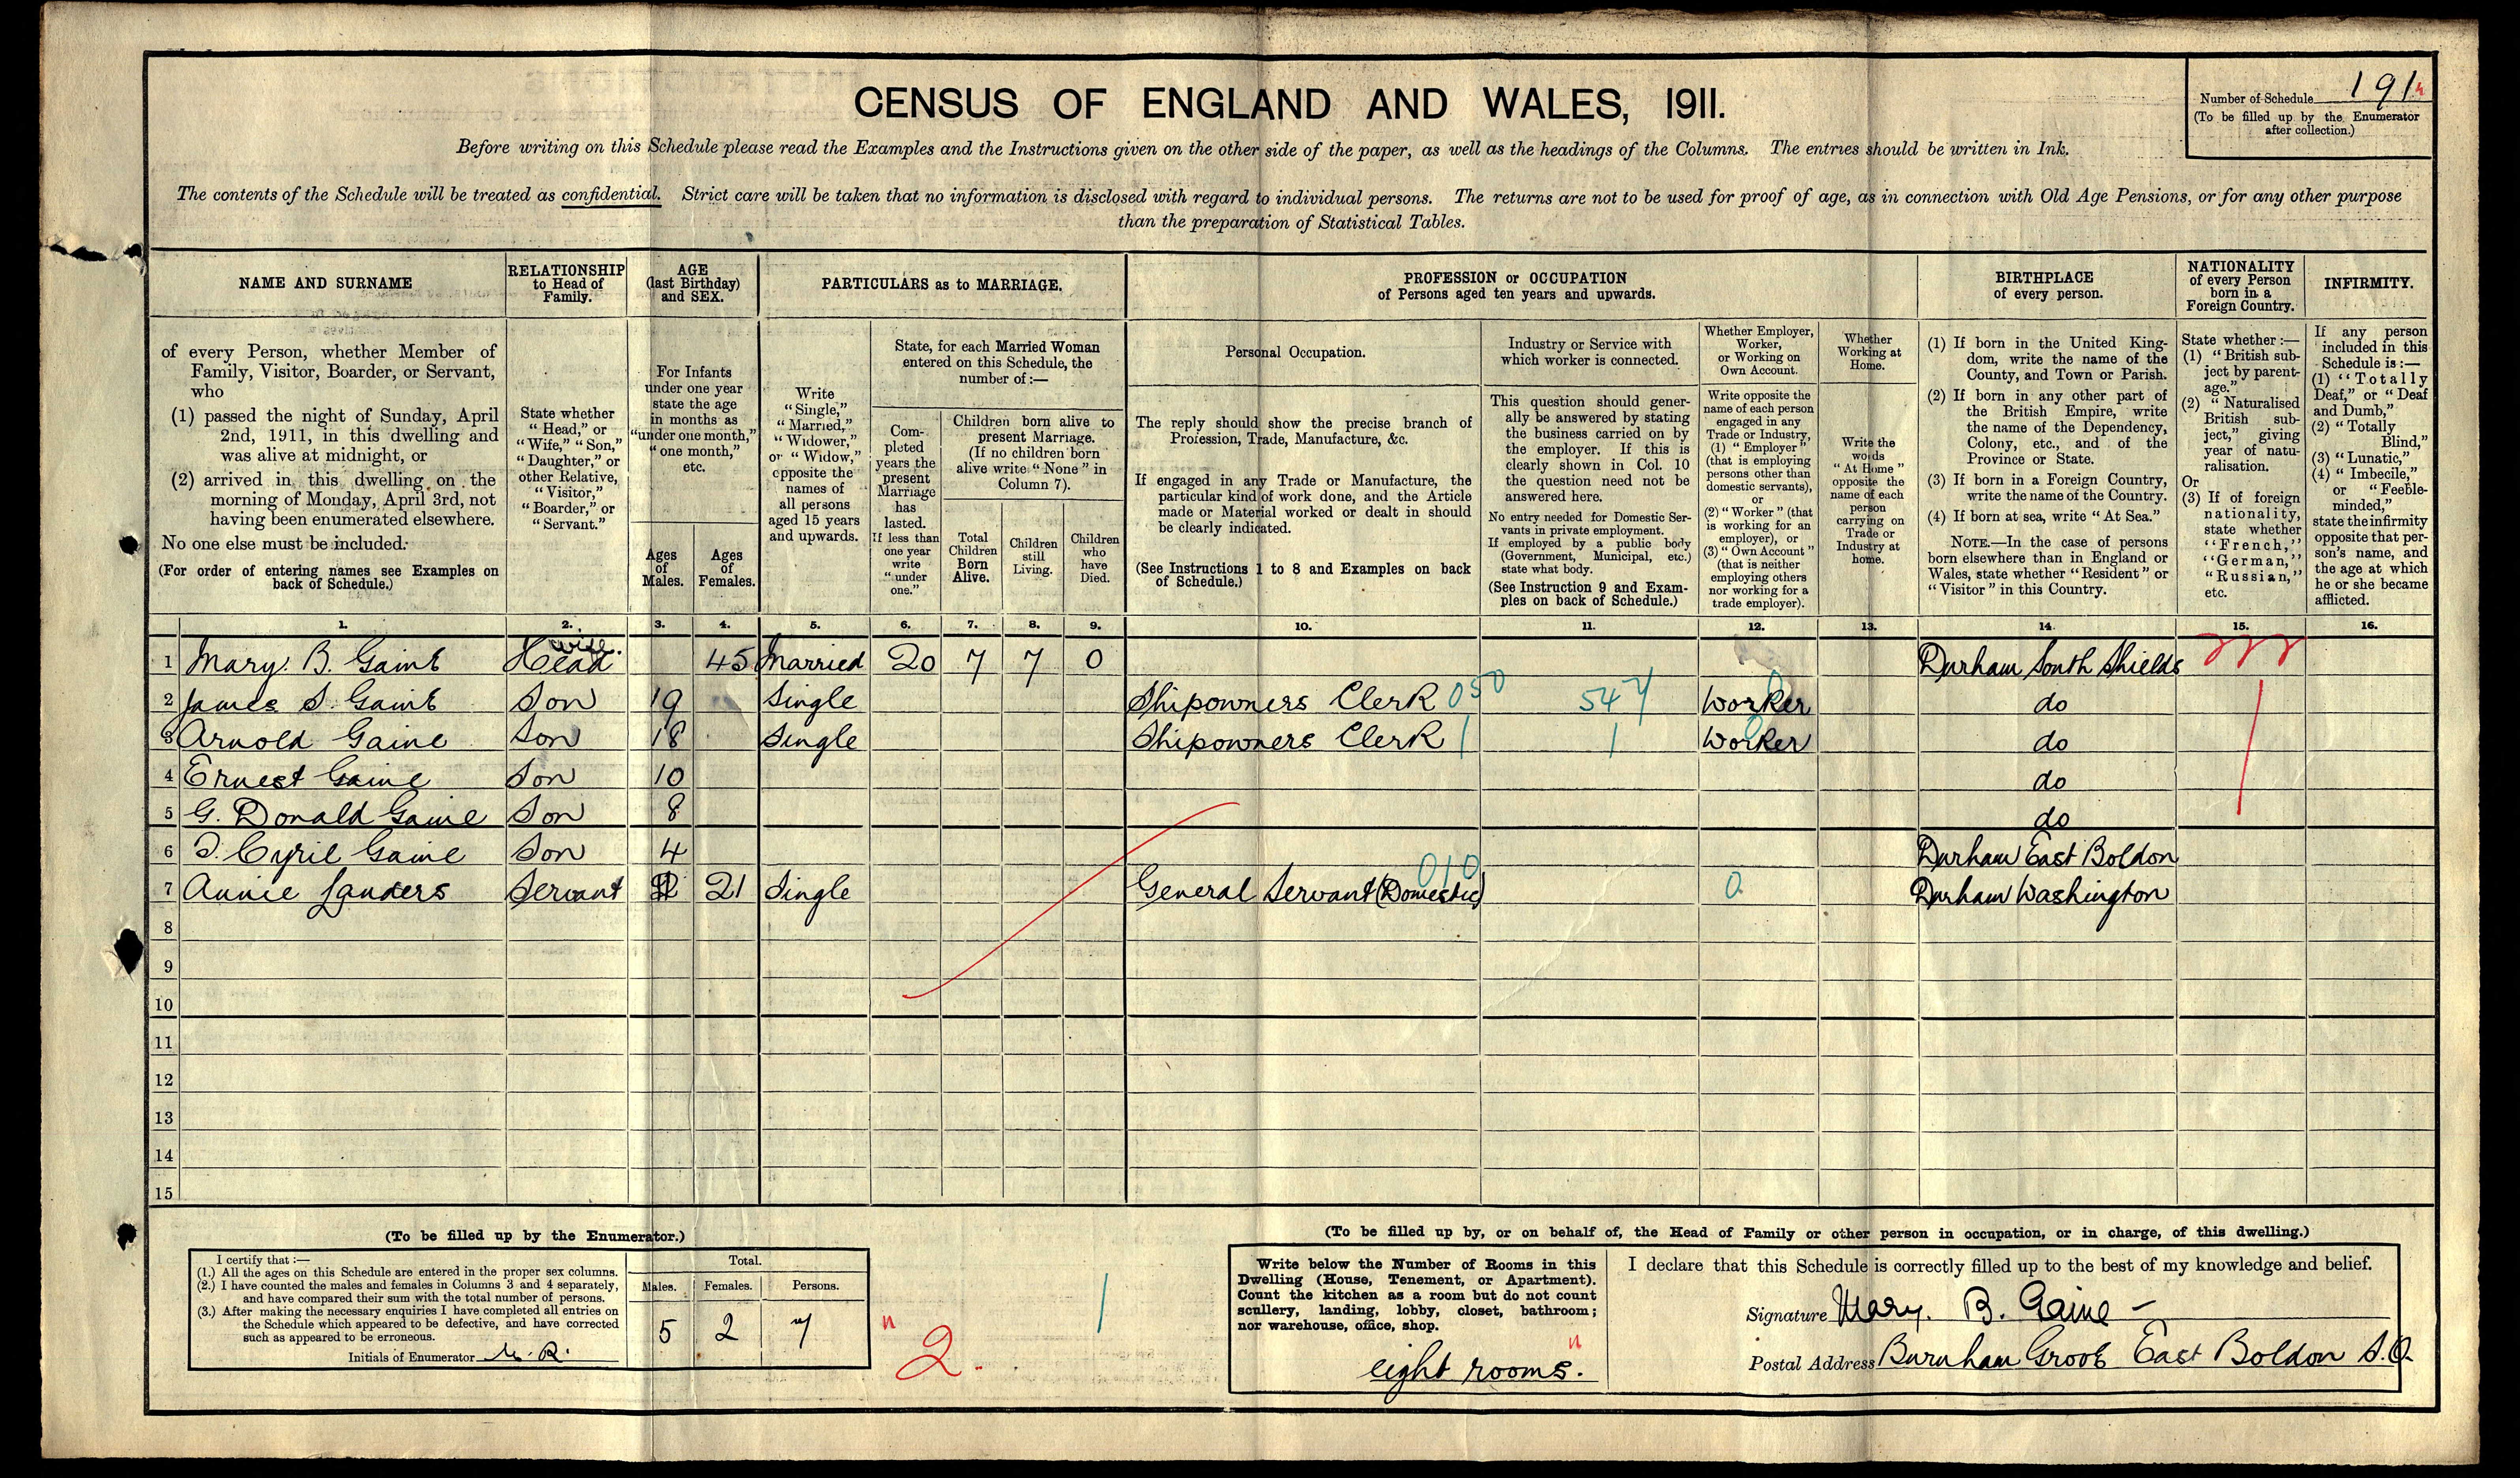 CENSUS OF ENGLAND AND WALES, 1911.
Number of Schedule 191
(To be filled up by the Enumerator
after collection.)
Before writing on this Schedule please read the Examples and the Instructions given on the other side of the paper, as well as the headings of the Columns. The entries should be written in Ink.
The contents of the Schedule will be treated as confidential. Strict care will be taken that no information is disclosed with regard to individual persons. The returns are not to be used for proof of age, as in connection with Old Age Pensions, or for any other purpose
than the preparation of Statistical Tables.
NAME AND SURNAME
of every Person, whether Member of
Family, Visitor, Boarder, or Servant,
who
(1) passed the night of Sunday, April
2nd, 1911, in this dwelling and
was alive at midnight, or
(2) arrived in this dwelling on the
morning of Monday, April 3rd, not
having been enumerated elsewhere.
No one else must be included.
(For order of entering names see Examples on
back of Schedule.)
RELATIONSHIP
to Head of
Family.
State whether
"Head," or
"Wife," "Son,"
"Daughter," or
other Relative,
"Visitor,"
"Boarder," or
"Servant."
AGE
(last Birthday)
and SEX.
For Infants
under one year
state the age
in months as
"under one month,"
"one month,"
etc.
Ages
of
Males.
Ages
of
Females.
PARTICULARS as to MARRIAGE.
Write
"Single,"
"Married,"
"Widower,"
or "Widow,"
opposite the
names of
all persons
aged 15 years
and upwards.
State, for each Married Woman
entered on this Schedule, the
number of:—
Com-
pleted
years the
present
Marriage
has
lasted.
If less than
one year
write
"under
one."
Children born alive to
present Marriage.
(If no children born
alive write "None" in
Column 7).
Total
Children
Born
Alive.
Children
still
Living.
Children
who
have
Died.
PROFESSION or OCCUPATION
of Persons aged ten years and upwards.
Personal Occupation.
The reply should show the precise branch of
Profession, Trade, Manufacture, &c.
If engaged in any Trade or Manufacture, the
particular kind of work done, and the Article
made or Material worked or dealt in should
be clearly indicated.
(See Instructions 1 to 8 and Examples on back
of Schedule.)
Industry or Service with
which worker is connected.
This question should gener-
ally be answered by stating
the business carried on by
the employer. If this is
clearly shown in Col. 10
the question need not be
answered here.
No entry needed for Domestic Ser-
vants in private employment.
If employed by a public body
(Government, Municipal, etc.)
state what body.
(See Instruction 9 and Exam-
ples on back of Schedule.)
Whether Employer,
Worker,
or Working on
Own Account.
Write opposite the
name of each person
engaged in any
Trade or Industry,
(1) "Employer"
(that is employing
persons other than
domestic servants),
or
(2) "Worker" (that
is working for an
employer), or
(3) "Own Account"
(that is neither
employing others
nor working for a
trade employer).
Whether
Working at
Home.
Write the
words
"At Home"
opposite the
name of each
person
carrying on
Trade or
Industry at
home.
BIRTHPLACE
of every person.
(1) If born in the United King-
dom, write the name of the
County, and Town or Parish.
(2) If born in any other part of
the British Empire, write
the name of the Dependency,
Colony, etc., and of the
Province or State.
(3) If born in a Foreign Country,
write the name of the Country.
(4) If born at sea, write "At Sea."
NOTE.—In the case of persons
born elsewhere than in England or
Wales, state whether "Resident" or
"Visitor" in this Country.
NATIONALITY
of every Person
born in a
Foreign Country.
State whether:—
(1) "British sub-
ject by parent-
age."
(2) "Naturalised
British sub-
ject," giving
year of natu-
ralisation.
Or
(3) If of foreign
nationality,
state whether
"French,"
"German,"
"Russian,"
etc.
INFIRMITY.
If any person
included in this
Schedule is:—
(1) "Totally
Deaf," or "Deaf
and Dumb,"
(2) "Totally
Blind,"
(3) "Lunatic,"
(4) "Imbecile,"
or "Feeble-
minded,"
state the infirmity
opposite that per-
son's name, and
the age at which
he or she became
afflicted.
1. 2. 3. 4. 5. 6. 7. 8. 9. 10. 11. 12. 13. 14. 15. 16.
wife.
1 Mary. B. Gaine Head 45 Married 20 7 7 0 Durham South Shields
2 James S. Gaine Son 19 Single Shipowners Clerk 050 547 Worker do
3 Arnold Gaine Son 18 Single Shipowners Clerk Worker do
4 Ernest Gaine Son 10 do
5 G. Donald Gaine Son 8 do
6 Cyril Gaine Son 4 Durham East Boldon
010
7 Annie Landers Servant 21 Single General Servant (Domestic) 0 Durham Washington
8
9
10
11
12
13
14
15
(To be filled up by the Enumerator.)
I certify that:—
(1.) All the ages on this Schedule are entered in the proper sex columns.
(2.) I have counted the males and females in Columns 3 and 4 separately,
and have compared their sum with the total number of persons.
(3.) After making the necessary enquiries I have completed all entries on
the Schedule which appeared to be defective, and have corrected
such as appeared to be erroneous.
Initials of Enumerator
Total.
Males. Females. Persons.
5 2 7
2.
(To be filled up by, or on behalf of, the Head of Family or other person in occupation, or in charge, of this dwelling.)
Write below the Number of Rooms in this
Dwelling (House, Tenement, or Apartment).
Count the kitchen as a room but do not count
scullery, landing, lobby, closet, bathroom;
nor warehouse, office, shop.
eight rooms.
I declare that this Schedule is correctly filled up to the best of my knowledge and belief.
Signature Mary. B. Gaine
Postal Address Burnham Grove East Boldon S.O.